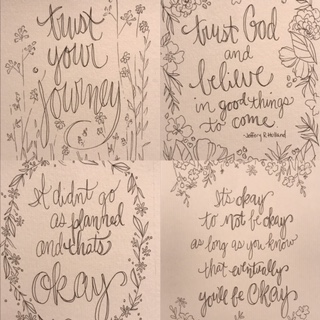 trust
your
journey
trust God
and
believe
in good things
to come
-Jeffrey R Holland
It didn't go
as planned
and thats
okay
It's okay
to not be okay
as long as you know
that eventually
you'll be okay